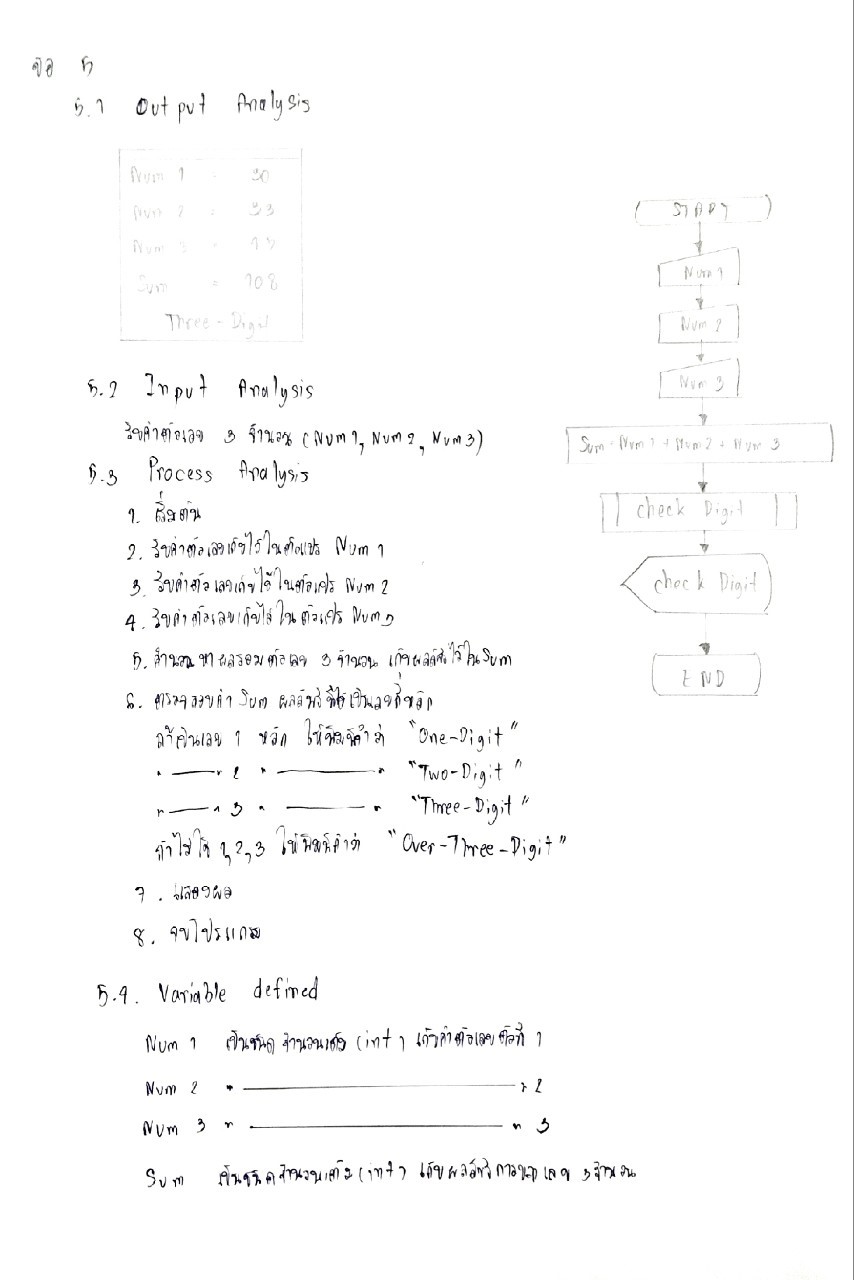 ข้อ 5
5.1 Output Analysis
Num 1 = 30
Num 2 = 33
Num 3 =
Sum = 108
Three - Digit
5.2 Input Analysis
รับค่าตัวเลข 3 จำนวน (Num 1, Num 2, Num 3)
5.3 Process Analysis
1. เริ่มต้น
2. รับค่าตัวเลขเก็บไว้ในตัวแปร Num 1
3. รับค่าตัวเลขเก็บไว้ในตัวแปร Num 2
4. รับค่าตัวเลขเก็บไว้ในตัวแปร Num 3
5. คำนวนหาผลรวมตัวเลข 3 จำนวน เก็บผลลัพธ์ไว้ใน Sum
6. ตรวจสอบค่า Sum ผลลัพธ์ที่ได้เป็นเลขกี่หลัก
ถ้าเป็นเลข 1 หลัก ให้พิมพ์คำว่า "One-Digit"
" —— " 2 " ———— " "Two-Digit"
" —— " 3 " ———— " "Three-Digit"
ถ้าไม่ใช่ 1, 2, 3 ให้พิมพ์คำว่า "Over-Three-Digit"
7. แสดงผล
8. จบโปรแกรม
5.4. Variable defined
Num 1 เป็นชนิดจำนวนเต็ม (int) เก็บค่าตัวเลขตัวที่ 1
Num 2 " ———————— " 2
Num 3 " ———————— " 3
Sum เป็นชนิดจำนวนเต็ม (int) เก็บผลลัพธ์การบวกเลข 3 จำนวน
START
Num 1
Num 2
Num 3
Sum = Num 1 + Num 2 + Num 3
check Digit
check Digit
END